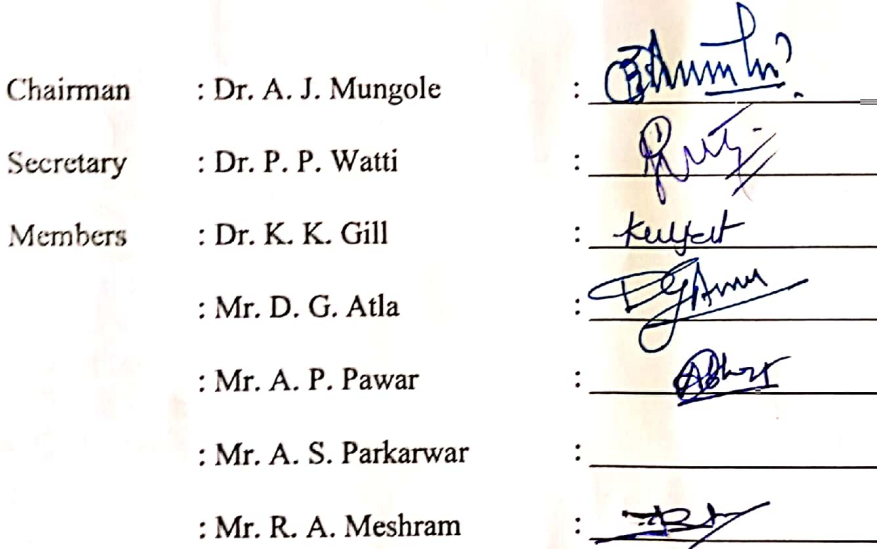 Chairman : Dr. A. J. Mungole :
Secretary : Dr. P. P. Watti :
Members : Dr. K. K. Gill :
: Mr. D. G. Atla :
: Mr. A. P. Pawar :
: Mr. A. S. Parkarwar :
: Mr. R. A. Meshram :